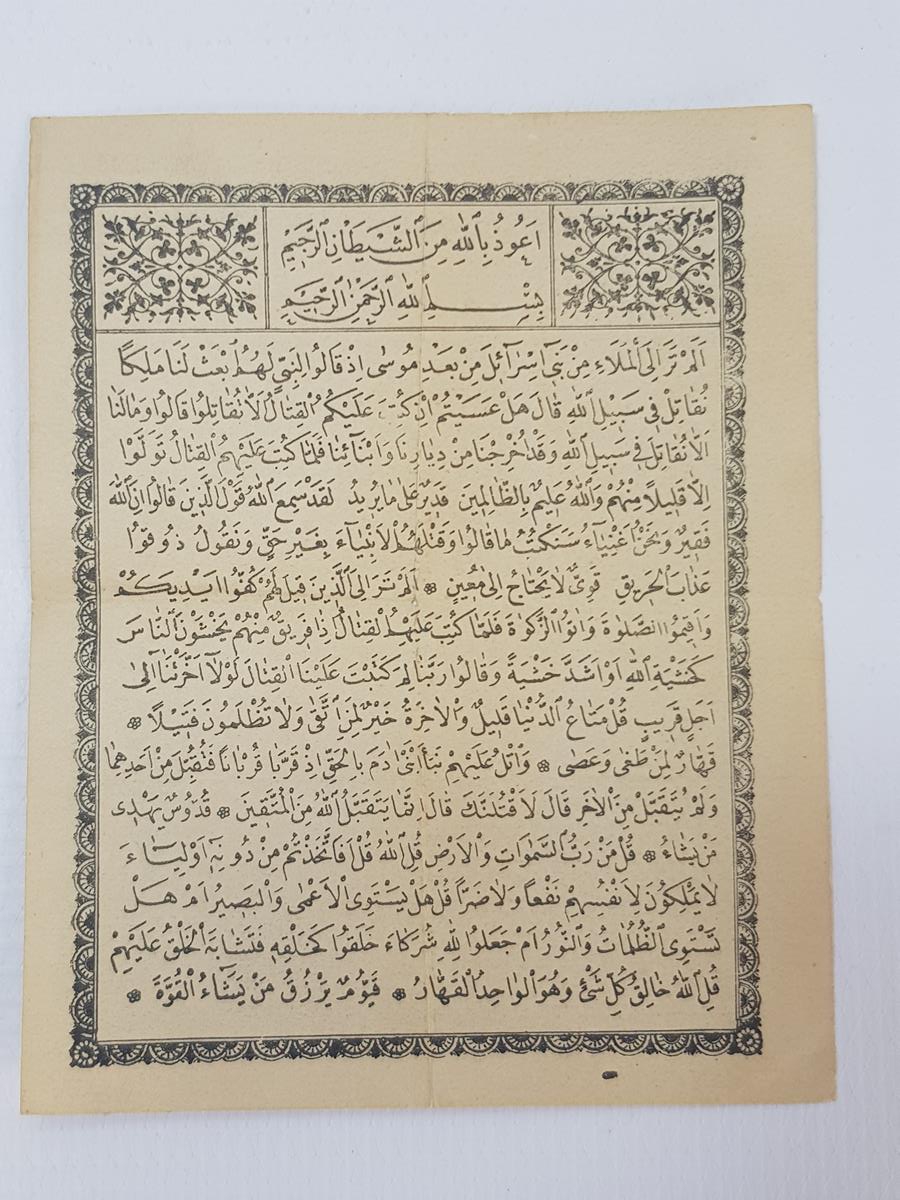 اَعُوذُ بِاللّٰهِ مِنَ الشَّيْطَانِ الرَّجِيمِ
بِسْمِ اللّٰهِ الرَّحْمٰنِ الرَّحِيمِ
اَلَمْ تَرَ اِلَى الْمَلَاءِ مِنْ بَنِٓى اِسْرَٓائِلَ مِنْ بَعْدِ مُوسٰى اِذْ قَالُوا لِنَبِىٍّ لَهُمُ ابْعَثْ لَنَا مَلِكًا
نُقَاتِلْ فِى سَبِيلِ اللّٰهِ قَالَ هَلْ عَسَيْتُمْ اِنْ كُتِبَ عَلَيْكُمُ الْقِتَالُ اَلَّا تُقَاتِلُوا قَالُوا وَمَا لَنَا
اَلَّا نُقَاتِلَ فِى سَبِيلِ اللّٰهِ وَقَدْ اُخْرِجْنَا مِنْ دِيَارِنَا وَاَبْنَائِنَا فَلَمَّا كُتِبَ عَلَيْهِمُ الْقِتَالُ تَوَلَّوْا
اِلَّا قَلِيلًا مِنْهُمْ وَاللّٰهُ عَلِيمٌ بِالظَّالِمِينَ قَدِيرٌ عَلٰى مَا يُرِيدُ لَقَدْ سَمِعَ اللّٰهُ قَوْلَ الَّذِينَ قَالُوا اِنَّ اللّٰهَ
فَقِيرٌ وَنَحْنُ اَغْنِيَاءُ سَنَكْتُبُ مَا قَالُوا وَقَتْلَهُمُ الْاَنْبِيَاءَ بِغَيْرِ حَقٍّ وَنَقُولُ ذُوقُوا
عَذَابَ الْحَرِيقِ قَوِىٌّ لَا يَحْتَاجُ اِلٰى مُعِينٍ ❁ اَلَمْ تَرَ اِلَى الَّذِينَ قِيلَ لَهُمْ كُفُّوا اَيْدِيَكُمْ
وَاَقِيمُوا الصَّلٰوةَ وَاٰتُوا الزَّكٰوةَ فَلَمَّا كُتِبَ عَلَيْهِمُ الْقِتَالُ اِذَا فَرِيقٌ مِنْهُمْ يَخْشَوْنَ النَّاسَ
كَخَشْيَةِ اللّٰهِ اَوْ اَشَدَّ خَشْيَةً وَقَالُوا رَبَّنَا لِمَ كَتَبْتَ عَلَيْنَا الْقِتَالَ لَوْلَٓا اَخَّرْتَنَٓا اِلٰٓى
اَجَلٍ قَرِيبٍ قُلْ مَتَاعُ الدُّنْيَا قَلِيلٌ وَالْاٰخِرَةُ خَيْرٌ لِمَنِ اتَّقٰى وَلَا تُظْلَمُونَ فَتِيلًا ❁
قَهَّارٌ لِمَنْ طَغٰى وَعَصٰى ❁ وَاتْلُ عَلَيْهِمْ نَبَاَ ابْنَىْ اٰدَمَ بِالْحَقِّ اِذْ قَرَّبَا قُرْبَانًا فَتُقُبِّلَ مِنْ اَحَدِهِمَا
وَلَمْ يُتَقَبَّلْ مِنَ الْاٰخَرِ قَالَ لَاَقْتُلَنَّكَ قَالَ اِنَّمَا يَتَقَبَّلُ اللّٰهُ مِنَ الْمُتَّقِينَ ❁ قُدُّوسٌ يَهْدِى
مَنْ يَشَاءُ ❁ قُلْ مَنْ رَبُّ السَّمٰوَاتِ وَالْاَرْضِ قُلِ اللّٰهُ قُلْ اَفَاتَّخَذْتُمْ مِنْ دُونِهٖٓ اَوْلِيَاءَ
لَا يَمْلِكُونَ لِاَنْفُسِهِمْ نَفْعًا وَلَا ضَرًّا قُلْ هَلْ يَسْتَوِى الْاَعْمٰى وَالْبَصِيرُ اَمْ هَلْ
تَسْتَوِى الظُّلُمَاتُ وَالنُّورُ اَمْ جَعَلُوا لِلّٰهِ شُرَكَاءَ خَلَقُوا كَخَلْقِهٖ فَتَشَابَهَ الْخَلْقُ عَلَيْهِمْ
قُلِ اللّٰهُ خَالِقُ كُلِّ شَىْءٍ وَهُوَ الْوَاحِدُ الْقَهَّارُ ❁ قَيُّومٌ يَرْزُقُ مَنْ يَشَاءُ الْقُوَّةَ ❁